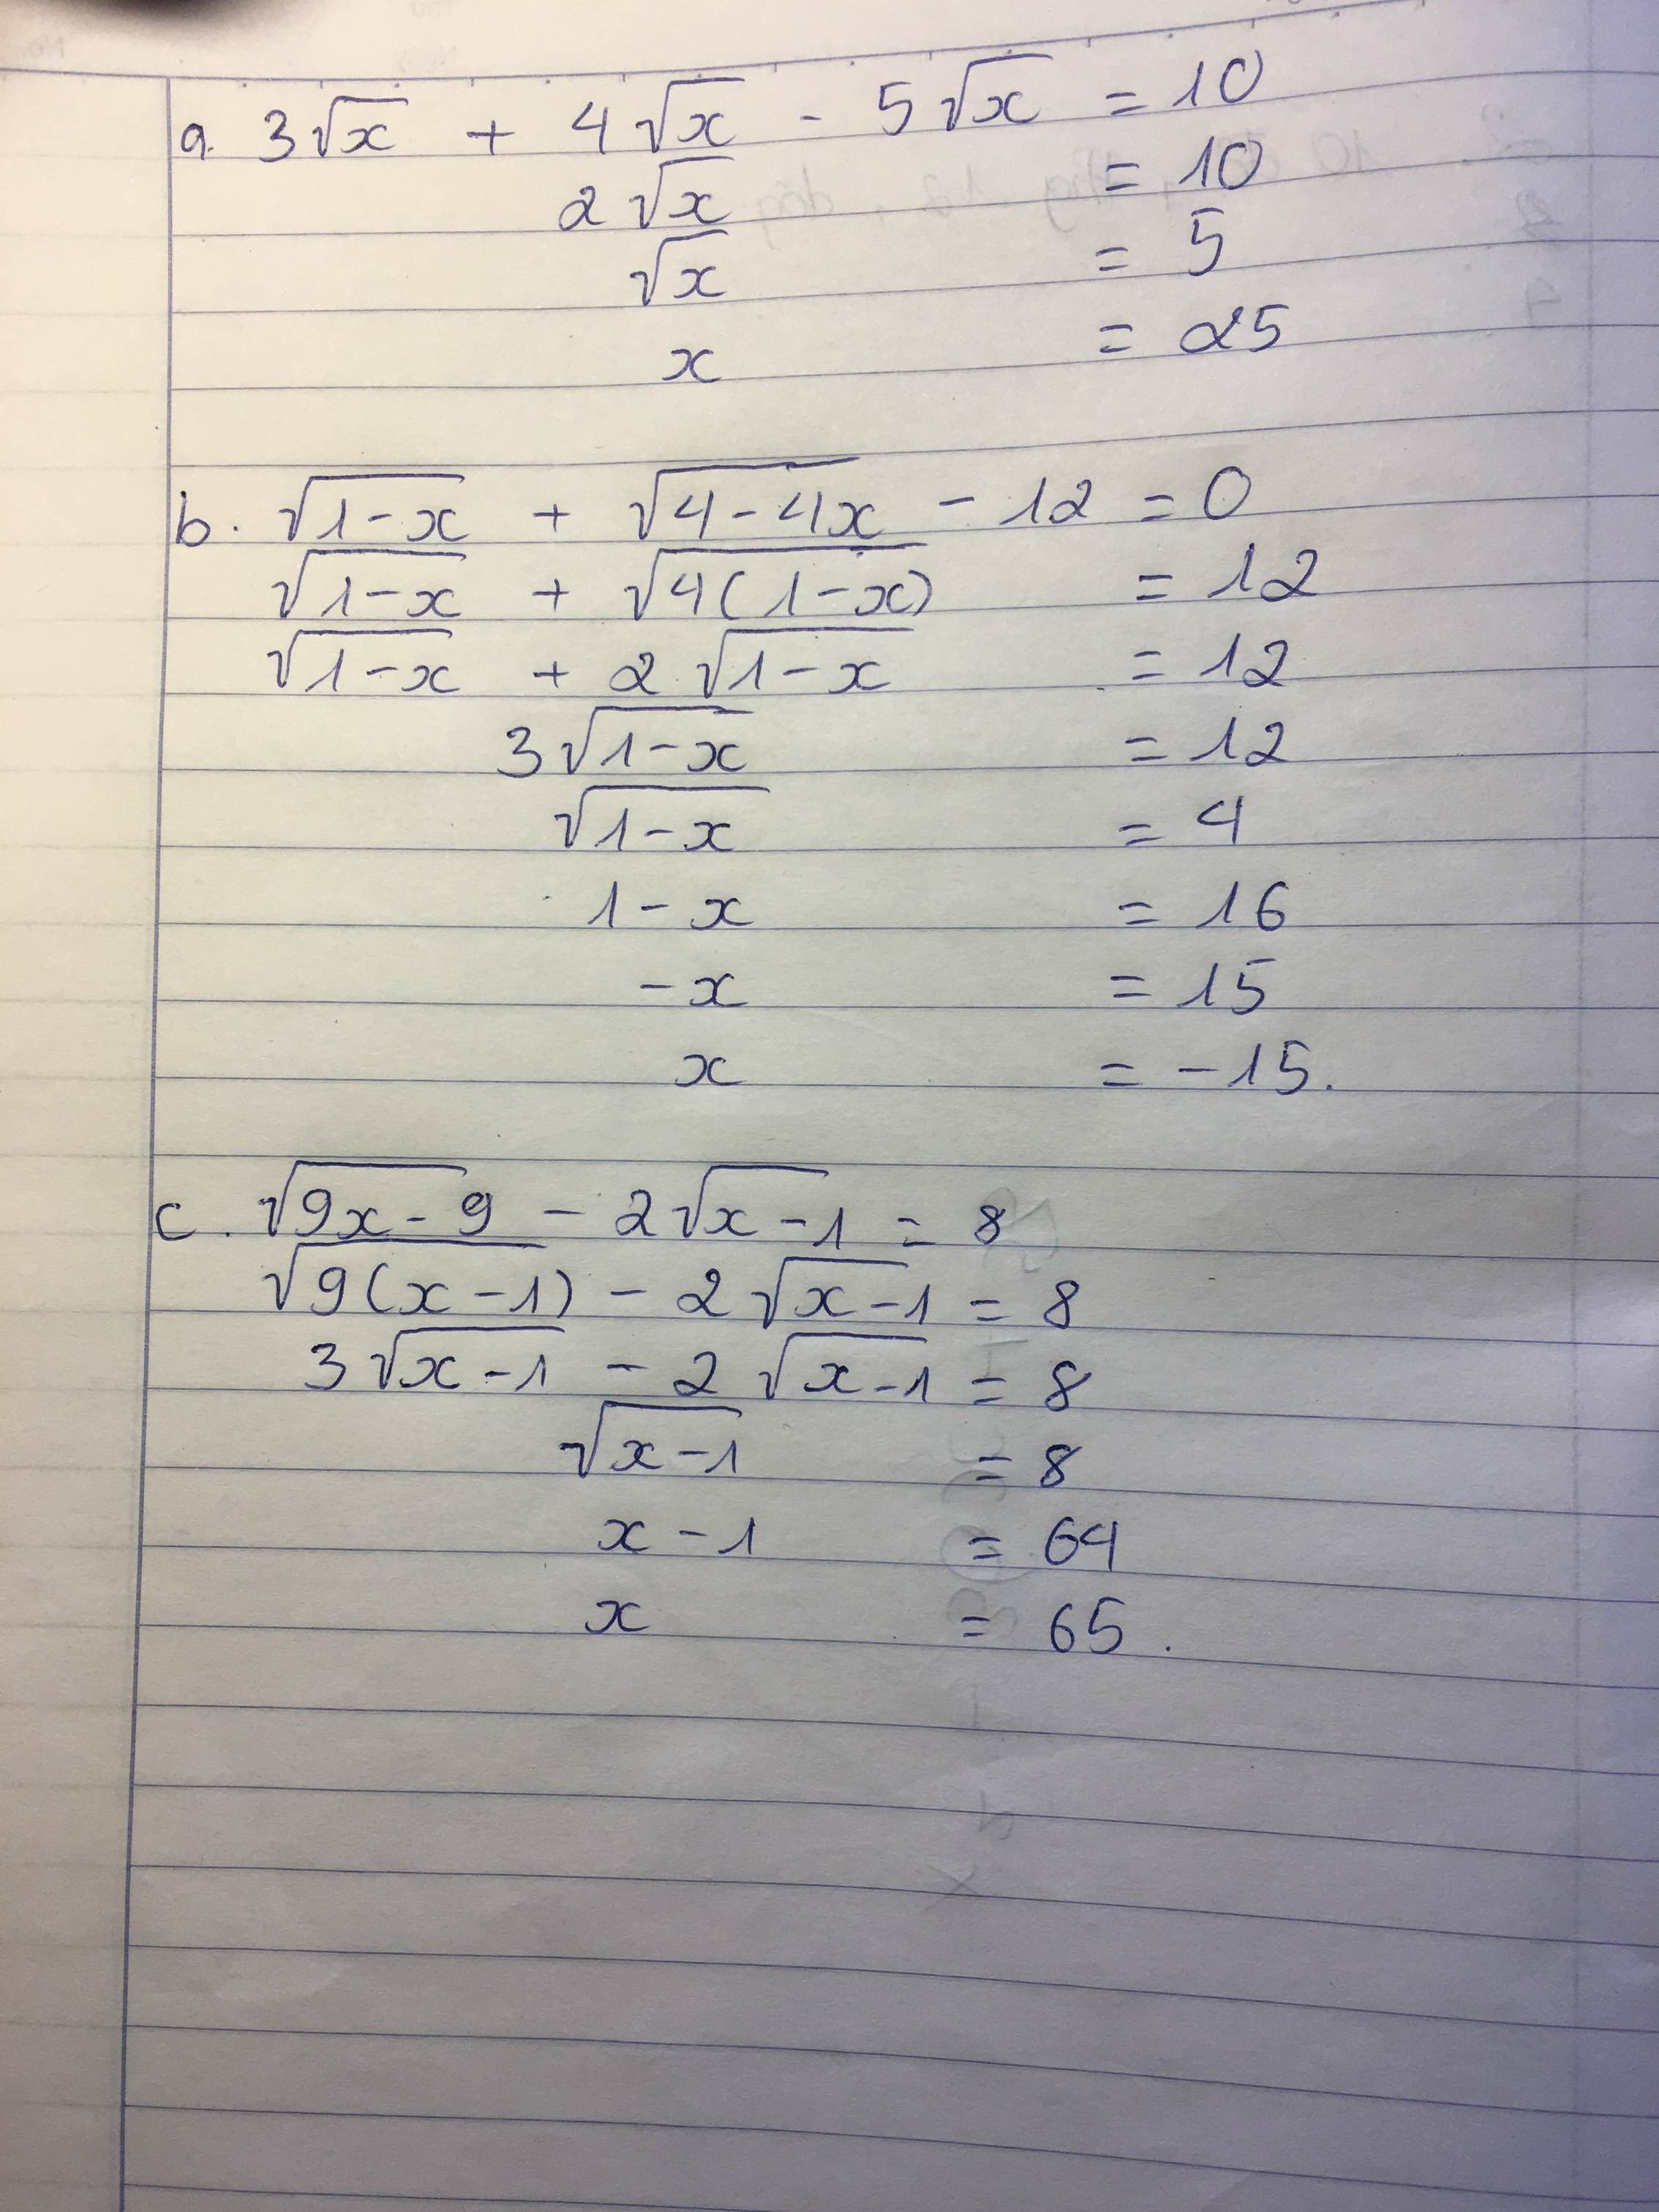 a. 3√x + 4√x - 5√x = 10
2√x = 10
√x = 5
x = 25
b. √1-x + √4-4x - 12 = 0
√1-x + √4(1-x) = 12
√1-x + 2√1-x = 12
3√1-x = 12
√1-x = 4
1-x = 16
-x = 15
x = -15.
c. √9x-9 - 2√x-1 = 8
√9(x-1) - 2√x-1 = 8
3√x-1 - 2√x-1 = 8
√x-1 = 8
x-1 = 64
x = 65.